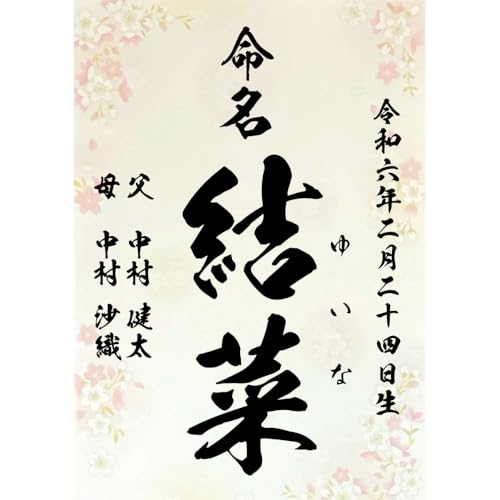 令和六年二月二十四日生
命名
結菜
ゆいな
父 中村 健太
母 中村 沙織